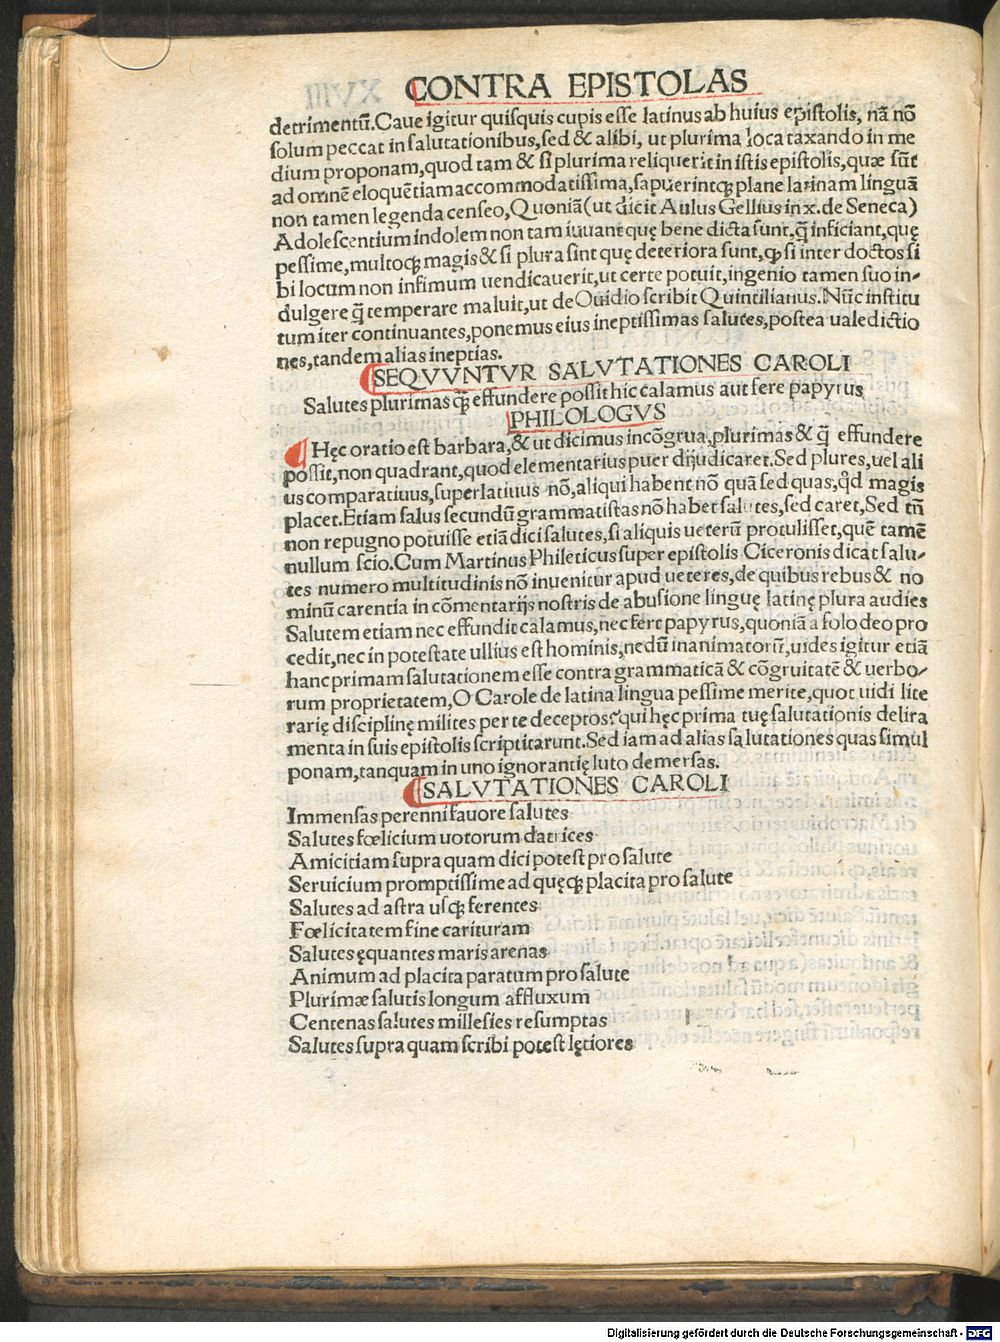 CONTRA EPISTOLAS
detrimentū. Caue igitur quisquis cupis esse latinus ab huius epistolis, nā nō
solum peccat in salutationibus, sed & alibi, ut plurima loca taxando in me
dium proponam, quod tam & si plurima reliquerit in istis epistolis, quæ sūt
ad omnē eloquētiam accommodatissima, sapuerintq; plane latinam linguā
non tamen legenda censeo, Quoniā (ut dicit Aulus Gellius in x. de Seneca)
Adolescentium indolem non tam iuuant quę bene dicta sunt, q̄ inficiant, quę
pessime, multoq; magis & si plura sint quę deteriora sunt, q; si inter doctos si
bi locum non infimum uendicauerit, ut certe potuit, ingenio tamen suo in-
dulgere q̄ temperare maluit, ut de Ouidio scribit Quintilianus. Nūc institu
tum iter continuantes, ponemus eius ineptissimas salutes, postea ualedictio
nes, tandem alias ineptias.
SEQVVNTVR SALVTATIONES CAROLI
Salutes plurimas q; effundere possit hic calamus aut fere papyrus
PHILOLOGVS
Hęc oratio est barbara, & ut dicimus incōgrua, plurimas & q̄ effundere
possit, non quadrant, quod elementarius puer dijudicaret. Sed plures, uel ali
us comparatiuus, superlatiuus nō, aliqui habent nō quā sed quas, qd magis
placet. Etiam salus secundū grammatistas nō habet salutes, sed caret, Sed tn̄
non repugno potuisse etiā dici salutes, si aliquis ueterū protulisset, quē tamē
nullum scio. Cum Martinus Phileticus super epistolis Ciceronis dicat salu-
tes numero multitudinis nō inuenitur apud ueteres, de quibus rebus & no
minū carentia in cōmentarijs nostris de abusione linguę latinę plura audies
Salutem etiam nec effundit calamus, nec fert papyrus, quoniā a solo deo pro
cedit, nec in potestate ullius est hominis, nedū inanimatorū, uides igitur etiā
hanc primam salutationem esse contra grammaticā & cōgruitatē & uerbo-
rum proprietatem, O Carole de latina lingua pessime merite, quot uidi lite
rarię disciplinę milites per te deceptos? qui hęc prima tuę salutationis delira
menta in suis epistolis scriptitarunt. Sed iam ad alias salutationes quas simul
ponam, tanquam in uno ignorantię luto demersas.
SALVTATIONES CAROLI
Immensas perenni fauore salutes
Salutes fœlicium uotorum datrices
Amicitiam supra quam dici potest pro salute
Seruicium promptissime ad quęq; placita pro salute
Salutes ad astra usq; ferentes
Fœlicitatem fine carituram
Salutes ęquantes maris arenas
Animum ad placita paratum pro salute
Plurimæ salutis longum affluxum
Centenas salutes millesies resumptas
Salutes supra quam scribi potest lętiores
Digitalisierung gefördert durch die Deutsche Forschungsgemeinschaft - DFG